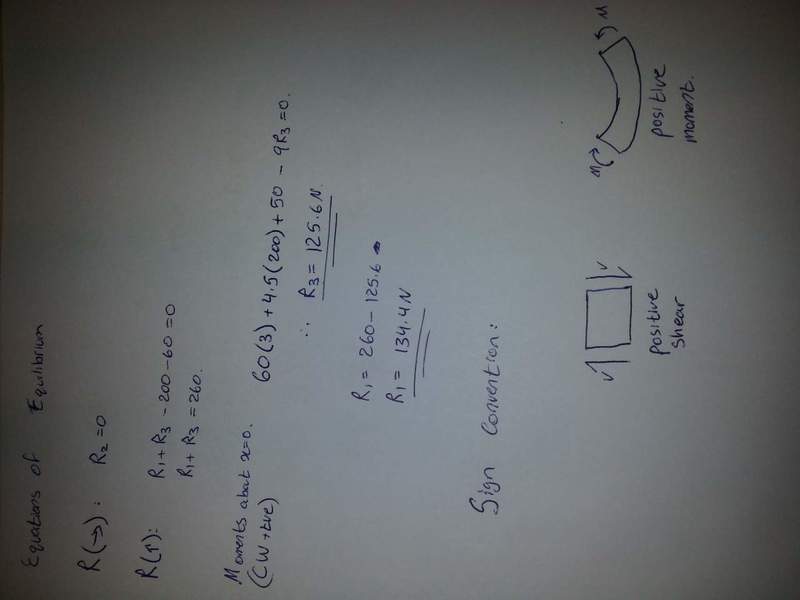 Equations of Equilibrium
R(→): R2 = 0
R(↑): R1 + R3 - 200 - 60 = 0
R1 + R3 = 260.
Moments about x=0.
(CW +tve)
60(3) + 4.5(200) + 50 - 9R3 = 0.
∴ R3 = 125.6 N.
R1 = 260 - 125.6
R1 = 134.4 N
Sign Convention:
V
V
positive
shear
M
M
positive
moment.